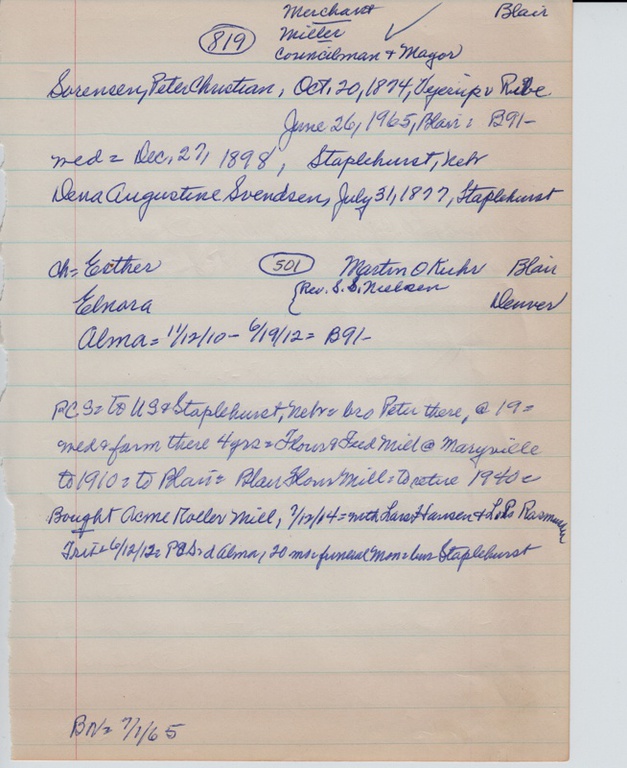 Merchant Blair
(819) Miller ✓
Councilman & Mayor
Sorensen, Peter Christian, Oct. 20, 1874, Vejrup v Ribe
June 26, 1965, Blair: B91-
med = Dec, 27, 1898, Staplehurst, Nebr
Dena Augustine Svendsen, July 31, 1877, Staplehurst
ch = Esther (501) Martin O Kuhr Blair
Elnora {Rev. S. S. Nielsen Denver
Alma = 11/12/10 - 6/19/12 = B91-
P.C.S = to US & Staplehurst, Nebr = bro Peter there, @ 19 =
med & farm there 4 yrs = Flour & Feed Mill @ Maryville
to 1910 = to Blair = Blair Flour Mill = to retire 1940 =
Bought Acme Roller Mill, 7/12/14 = with Lars Hansen & Rasmussen
6/12/12 = PCS = d Alma, 20 mo = funeral Mon = bur Staplehurst
BN = 7/1/65